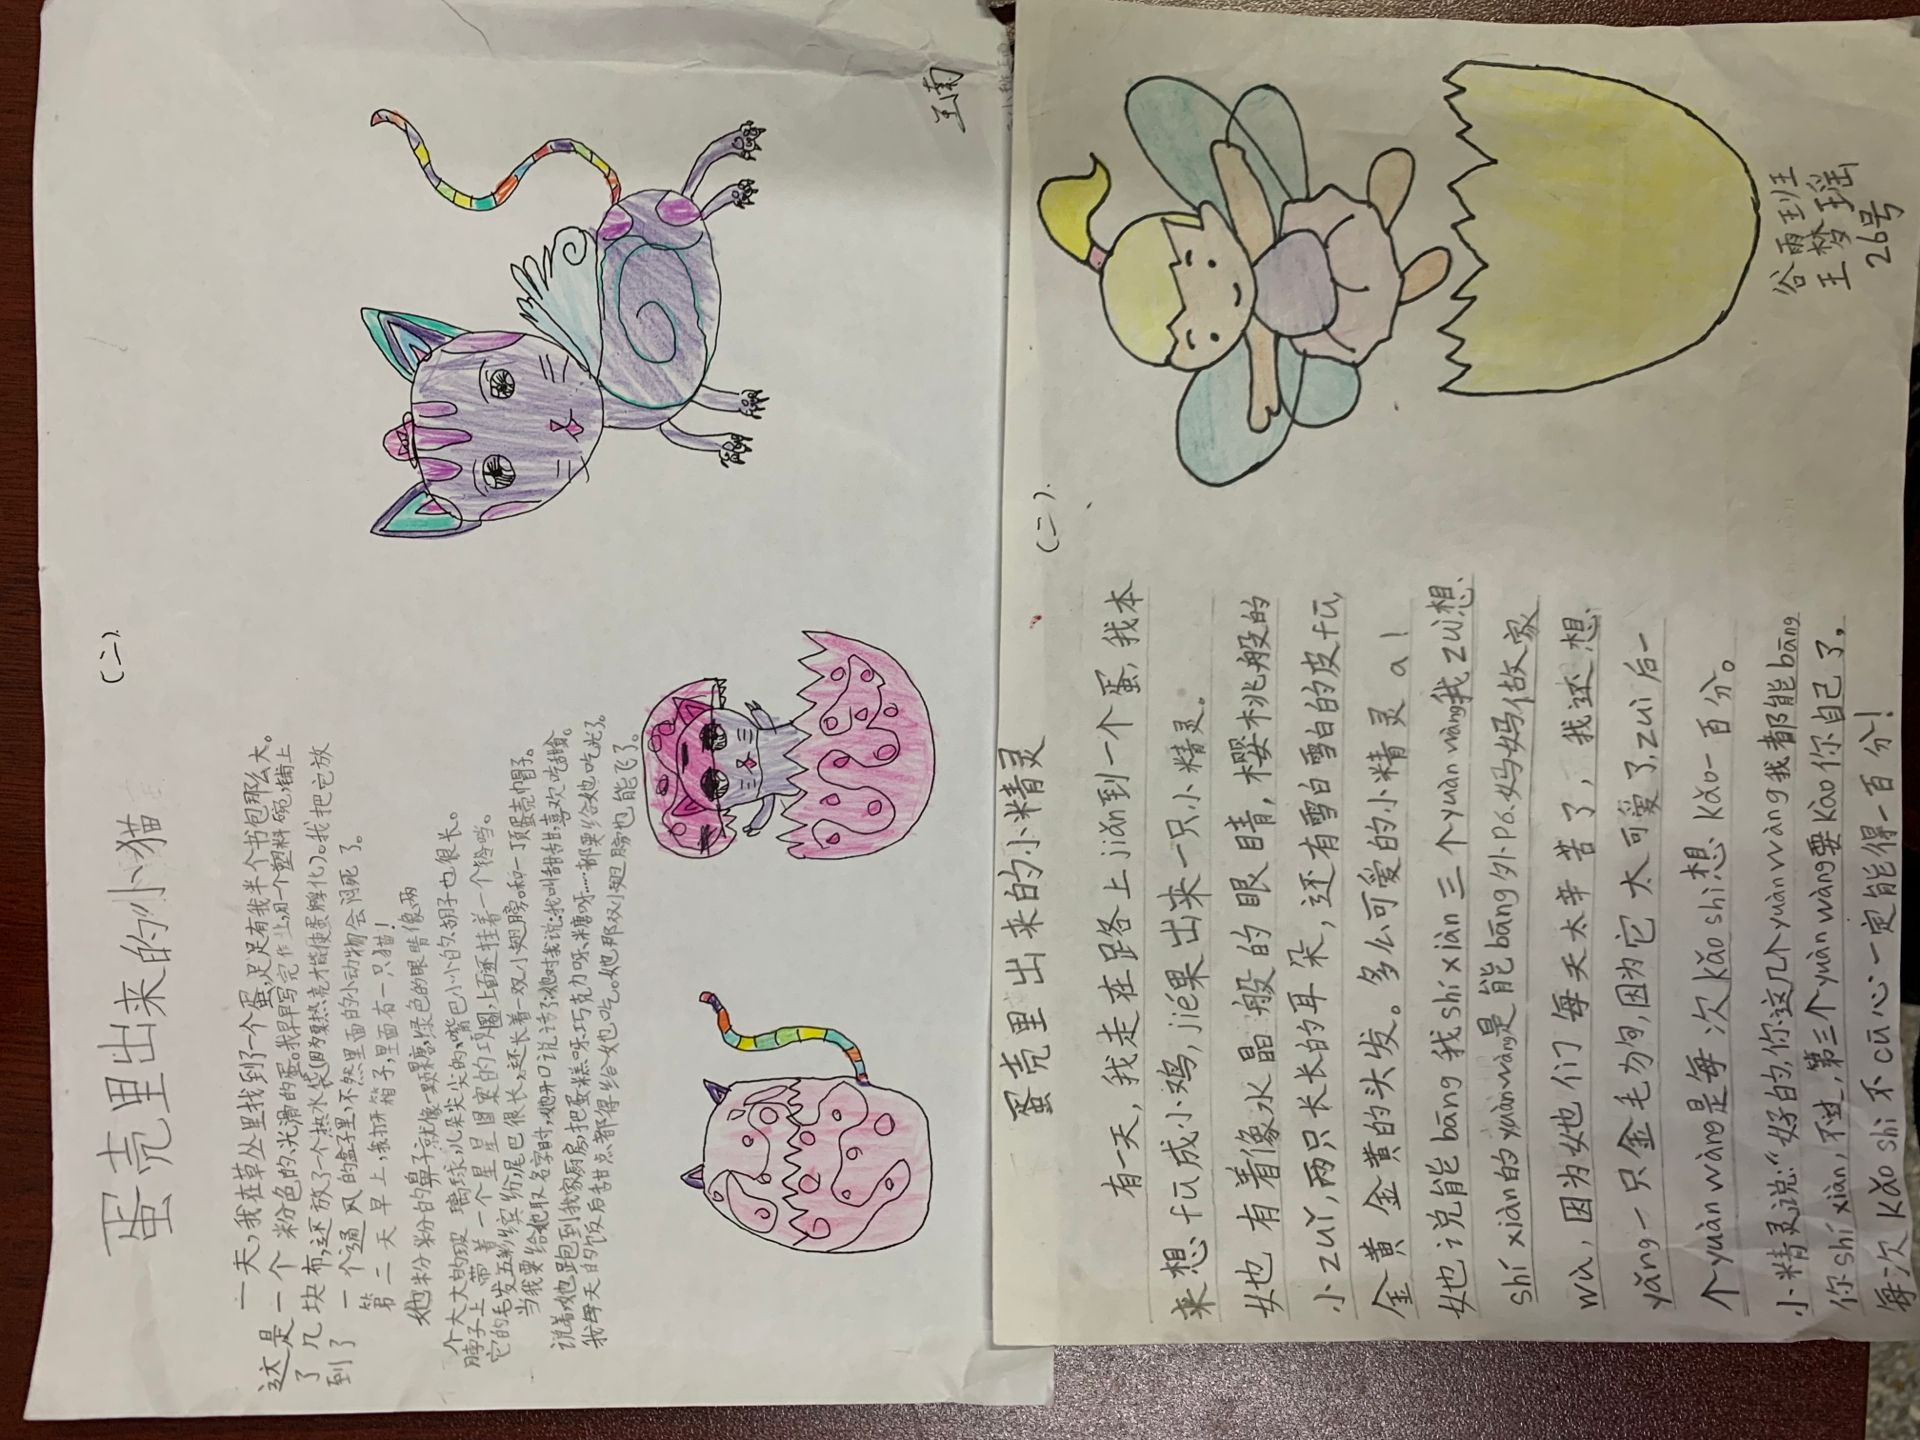 蛋壳里出来的小猫
(二).
一天,我在草丛里找到了一个蛋,足足有我半个书包那么大。
这是一个粉分色的,光滑的蛋。我早早写完作业,用一个塑料碗,铺上
了几块布,还放了一个热水袋(因为要热亮才能使蛋孵化)。我把它放
到了一个通风的盒子里,不然里面的小动物会闷死了。
第二天早上,我打开箱子,里面有一只猫!
她粉粉的鼻子就像一颗 ,绿色的眼睛像两
个大大的玻璃球,儿朵尖尖的,嘴巴小小的,胡子也很长。
脖子上带着一个星星图案的项圈,上面还挂着一个铃铛。
它的毛发五颜缤纷,尾巴很长,还长着一双小翅膀,和一顶蛋壳帽子。
当我要给她取名字时,她开口说话了,她对我说:我叫甜甜,喜欢吃甜食。
说着她跑到我家厨房,把蛋糕呀,巧克力呀,糖呀……都要给她吃光了。
我每天的饭后甜点都得给她吃。她那双小翅膀也能飞了。
王南
蛋壳里出来的小精灵
(二).
有一天,我走在路上jiǎn到一个蛋,我本
来想fū成小鸡,jié果出来一只小精灵。
她有着像水晶般的眼睛,樱桃般的
小zuǐ,两只长长的耳朵,还有雪白雪白的皮fū,
金黄金黄的头发。多么可爱的小精灵a!
她说能bāng我shí xiàn三个yuàn wàng我zuì想
shí xiàn的yuàn wàng是能bāng外Pó.妈妈做家
wù,因为她们每天太辛苦了,我还想
yǎng一只金毛勾,因为它太可爱了,zuì后一
个yuàn wàng是每次kǎo shì想kǎo一百分。
小精灵说:“好的,你这几个yuàn wàng我都能bāng
你shí xiàn,不过,第三个yuàn wàng要kào你自己了,
每次kǎo shì不cū心一定能得一百分!
谷雨班
王梦瑶
26号